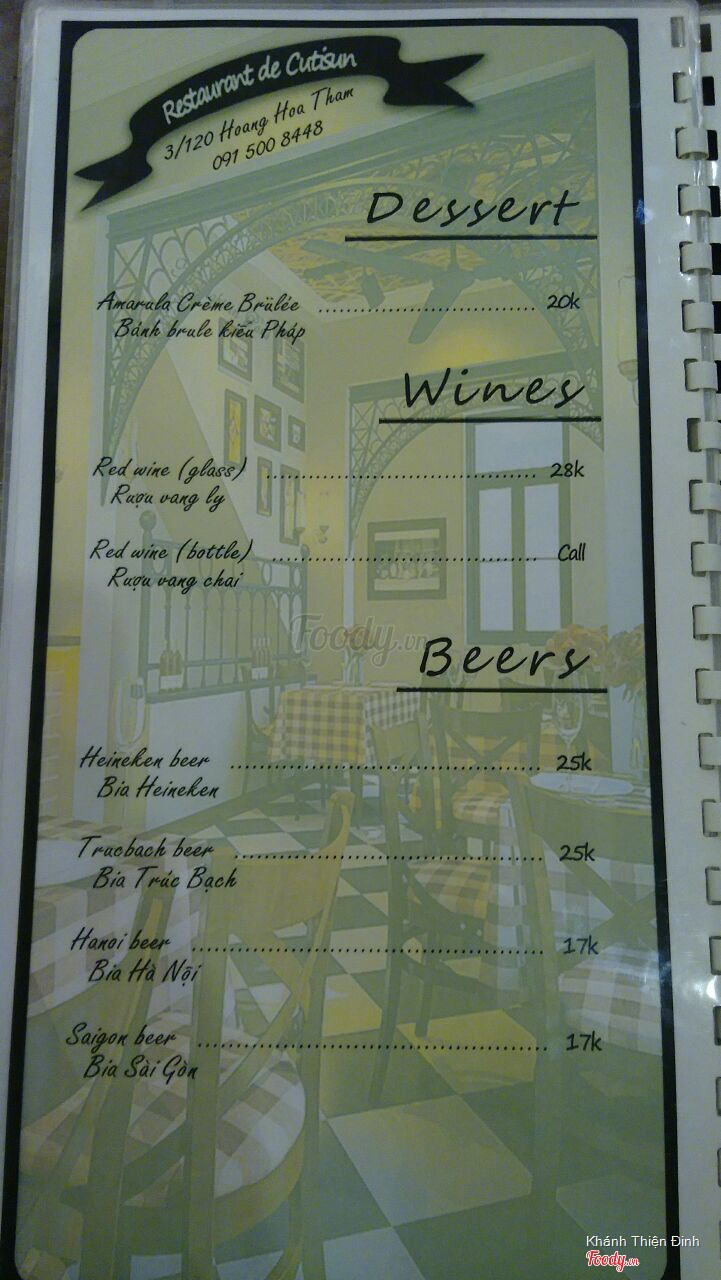 Restaurant de Cutisun
3/120 Hoang Hoa Tham
091 500 8448
Dessert
Amarula Crème Brülée ........................ 20k
Bánh brule kiểu Pháp
Wines
Red wine (glass) ........................ 28k
Rượu vang ly
Red wine (bottle) ........................ Call
Rượu vang chai
Foody.vn
Beers
Heineken beer ........................ 25k
Bia Heineken
Trucbach beer ........................ 25k
Bia Trúc Bạch
Hanoi beer ........................ 17k
Bia Hà Nội
Saigon beer ........................ 17k
Bia Sài Gòn
Khánh Thiện Đinh
Foody.vn